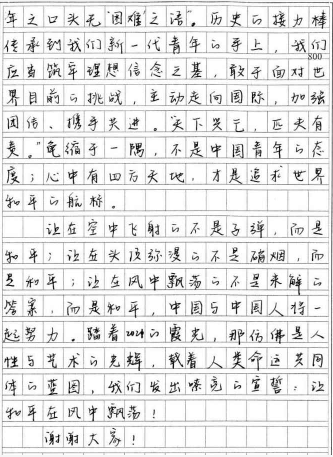 年之口头无“困难”之语”。历史的接力棒
传承到我们新一代青年的手上，我们
应当筑牢理想信念之基，敢于面对世
800
界目前的挑战，主动走向国际，加强
团结、携手共进。“天下兴亡，匹夫有
责。”龟缩于一隅，不是中国青年的态
度；心中有四方天地，才是追求世界
和平的航标。
让在空中飞射的不是子弹，而是
和平；让在头顶弥漫的不是硝烟，而
是和平；让在风中飘荡的不是未解的
答案，而是和平，中国与中国人将一
起努力。踏着2024的霞光，那仿佛是人
性与艺术的光辉，载着人类命运共同
体的蓝图，我们发出嘹亮的宣誓：让
和平在风中飘荡！
谢谢大家！